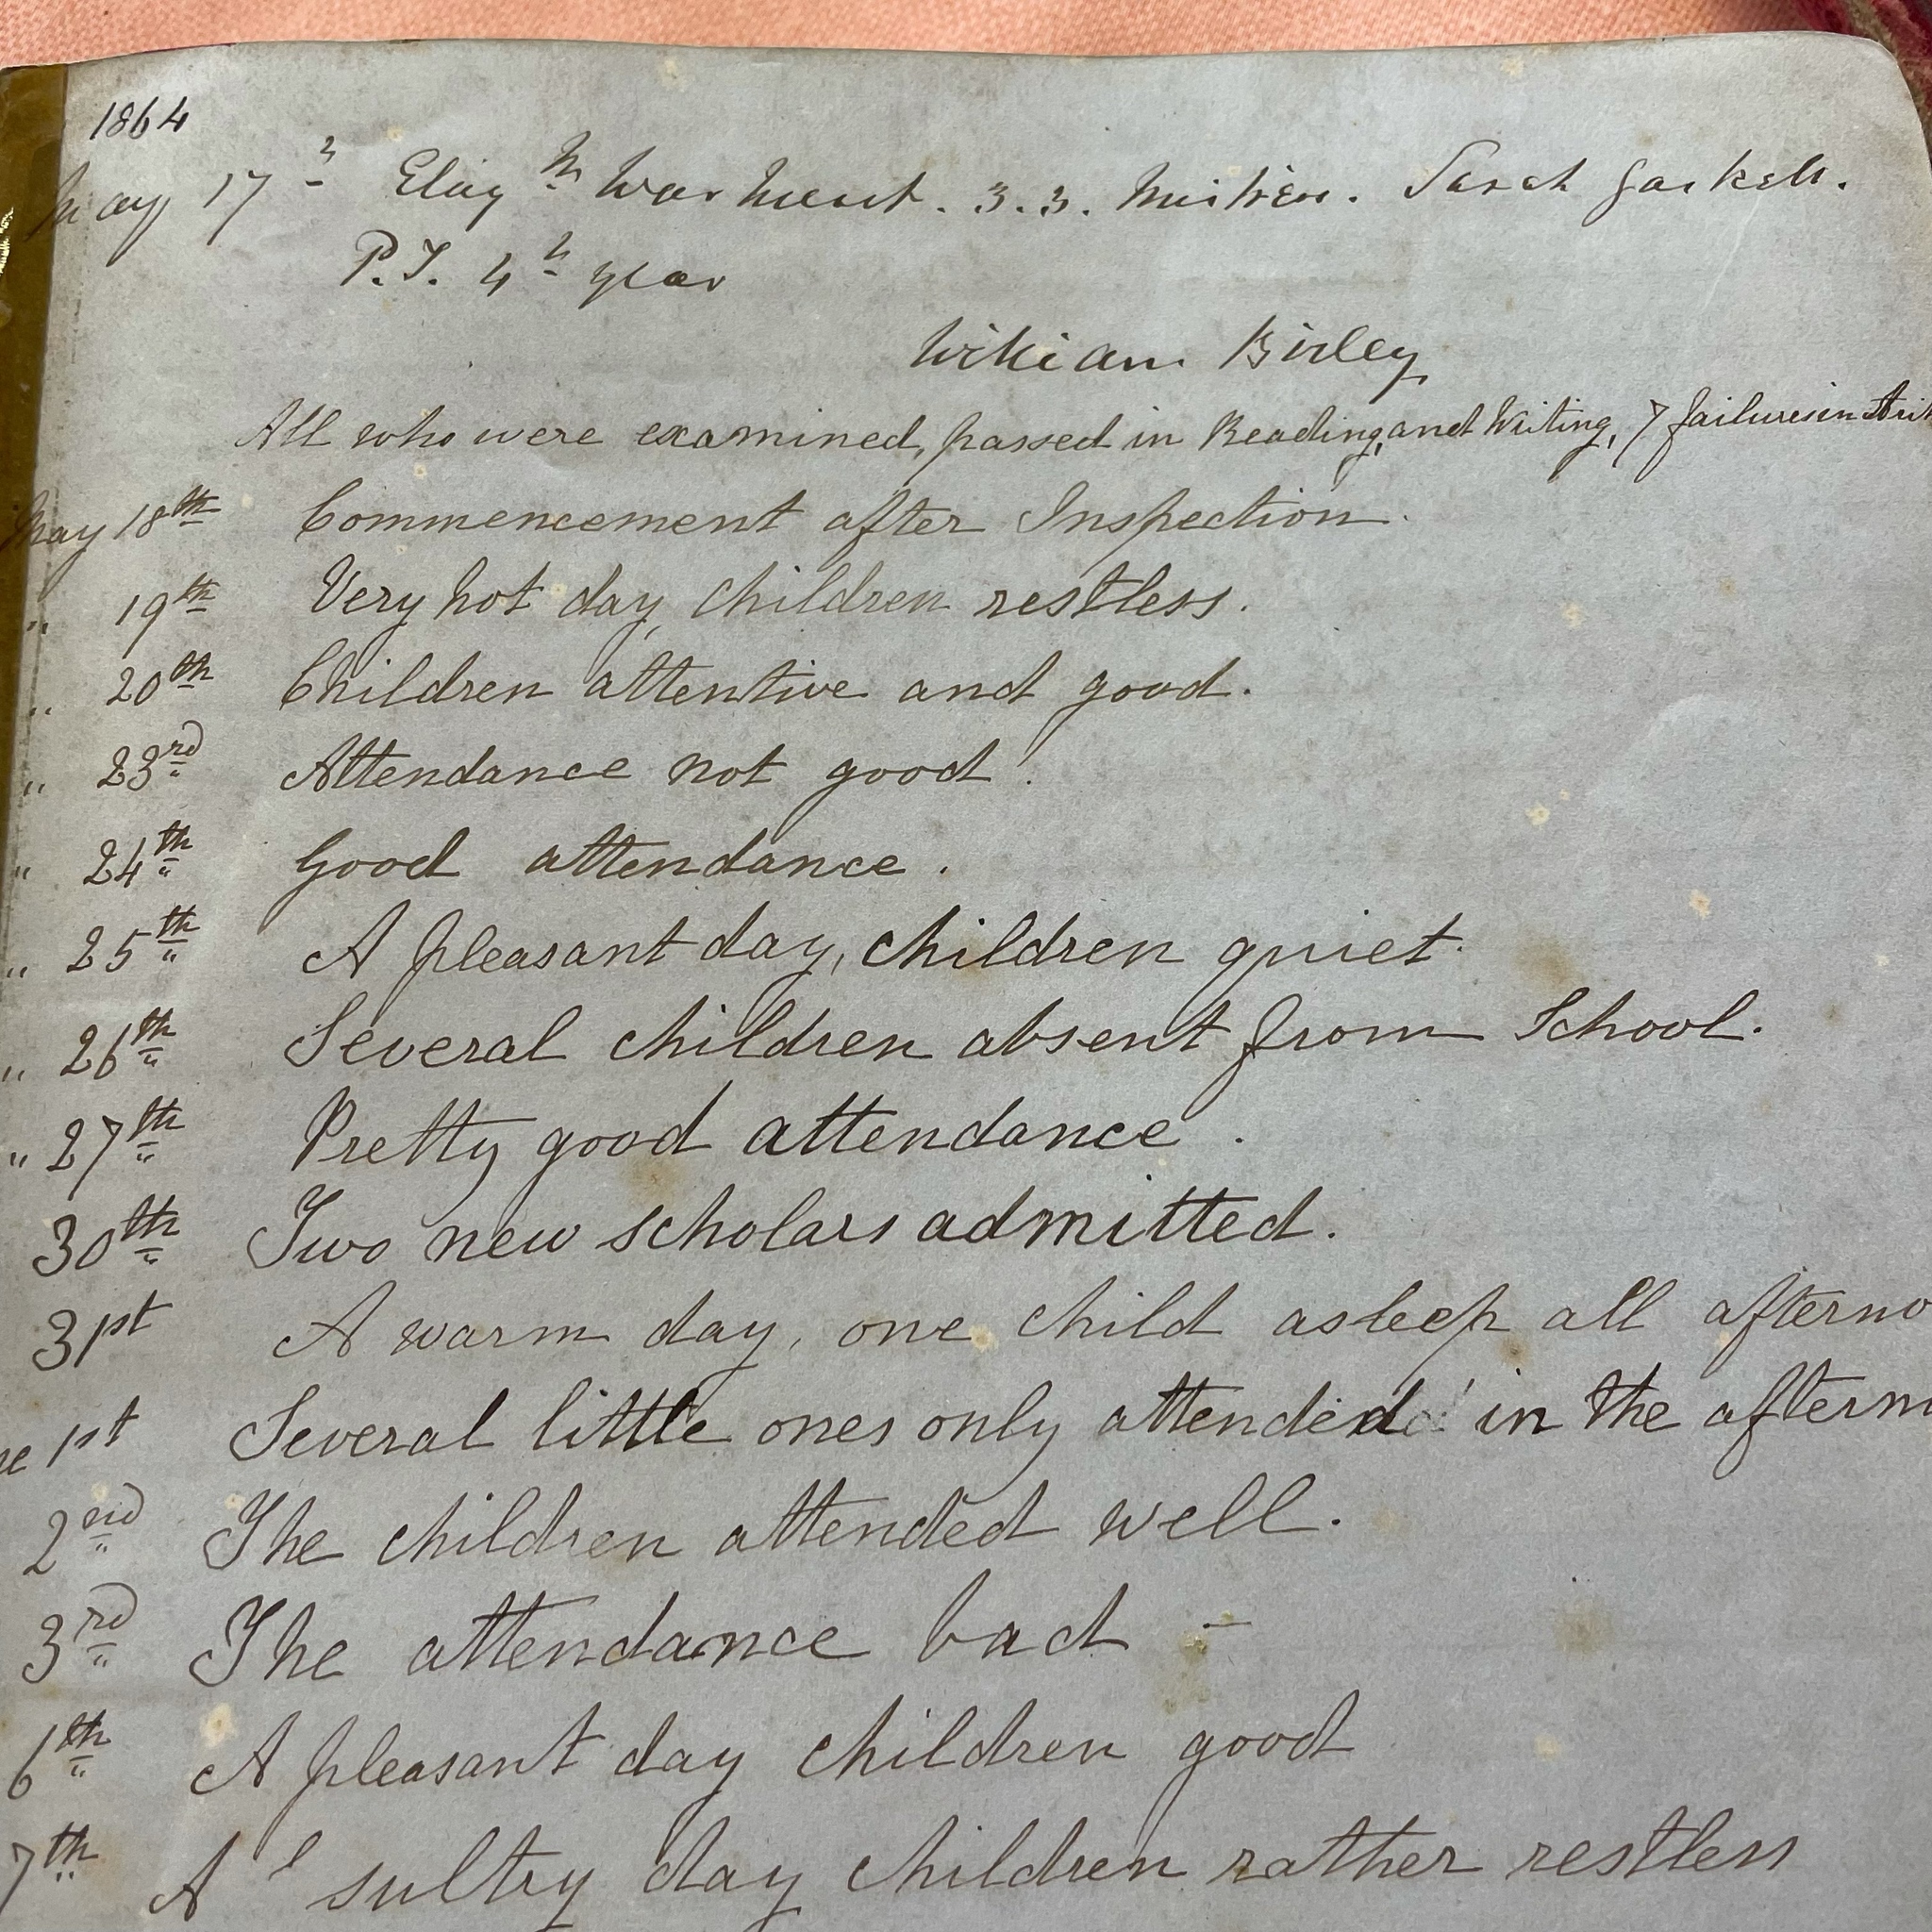 1864
May 17th Elizth Warhurst. 3.3. Mistress. Sarah Gaskell.
P.T. 4th year
William Birley
All who were examined, passed in Reading, and Writing, 7 failures in Arit
May 18th Commencement after Inspection.
" 19th Very hot day, children restless.
" 20th Children attentive and good.
" 23rd Attendance not good.
" 24th Good attendance.
" 25th A pleasant day, children quiet.
" 26th Several children absent from School.
" 27th Pretty good attendance.
30th Two new scholars admitted.
31st A warm day, one child asleep all afterno
ne 1st Several little ones only attended in the aftern
2nd The children attended well.
3rd The attendance bad -
6th A pleasant day children good
7th A sultry day children rather restless